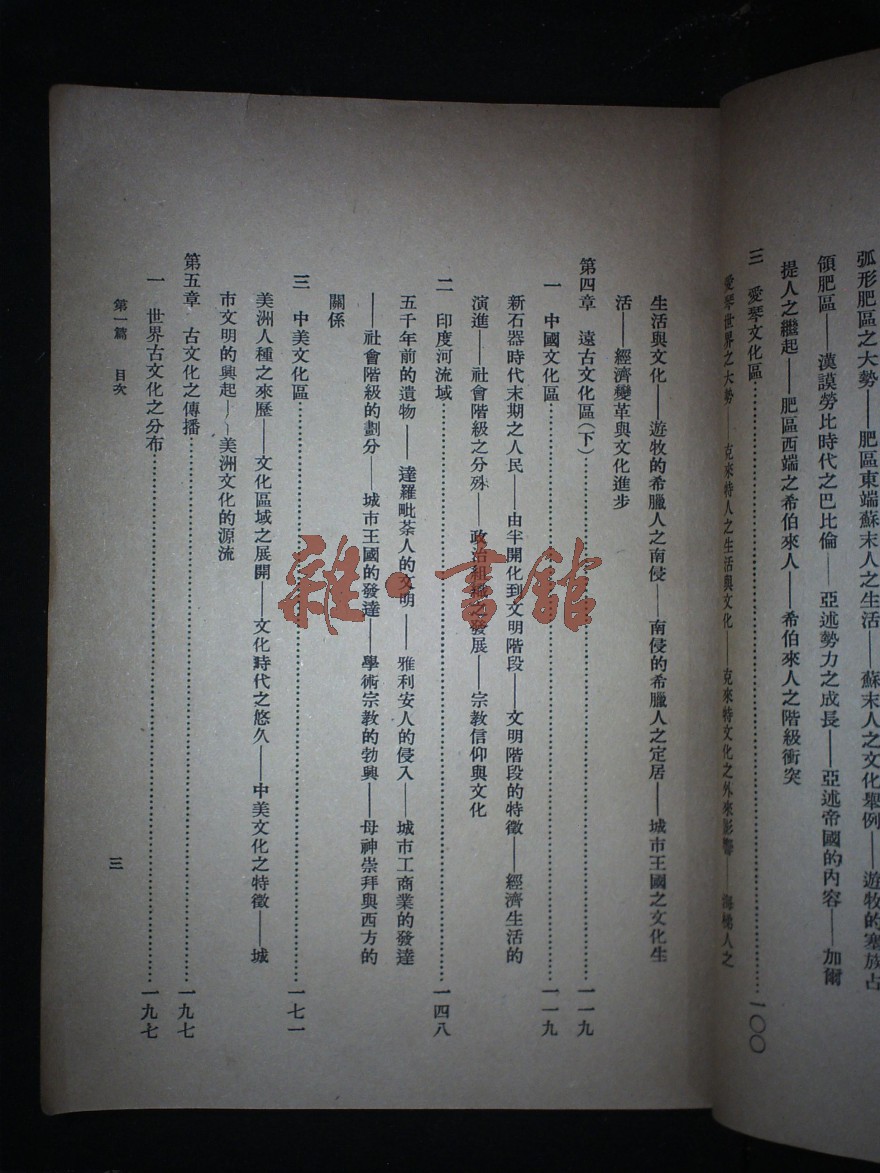 弧形肥區之大勢——肥區東端蘇末人之生活——蘇末人之文化舉例——遊牧的塞族占
領肥區——漢謨勞比時代之巴比倫——亞述勢力之成長——亞述帝國的內容——加爾
提人之繼起——肥區西端之希伯來人——希伯來人之階級衝突
三 愛琴文化區……一〇〇
愛琴世界之大勢——克來特人之生活與文化——克來特文化之外來影響——海梯人之
生活與文化——遊牧的希臘人之南侵——南侵的希臘人之定居——城市王國之文化生
活——經濟變革與文化進步
第四章 遠古文化區(下)……一一九
一 中國文化區……一一九
新石器時代末期之人民——由半開化到文明階段——文明階段的特徵——經濟生活的
演進——社會階級之分殊——政治組織之發展——宗教信仰與文化
二 印度河流域……一四八
五千年前的遺物——達羅毗荼人的文明——雅利安人的侵入——城市工商業的發達
——社會階級的劃分——城市王國的發達——學術宗教的勃興——母神崇拜與西方的
關係
三 中美文化區……一七一
美洲人種之來歷——文化區域之展開——文化時代之悠久——中美文化之特徵——城
市文明的興起——美洲文化的源流
第五章 古文化之傳播……一九七
一 世界古文化之分布……一九七
第一篇 目次
三
雜·書館